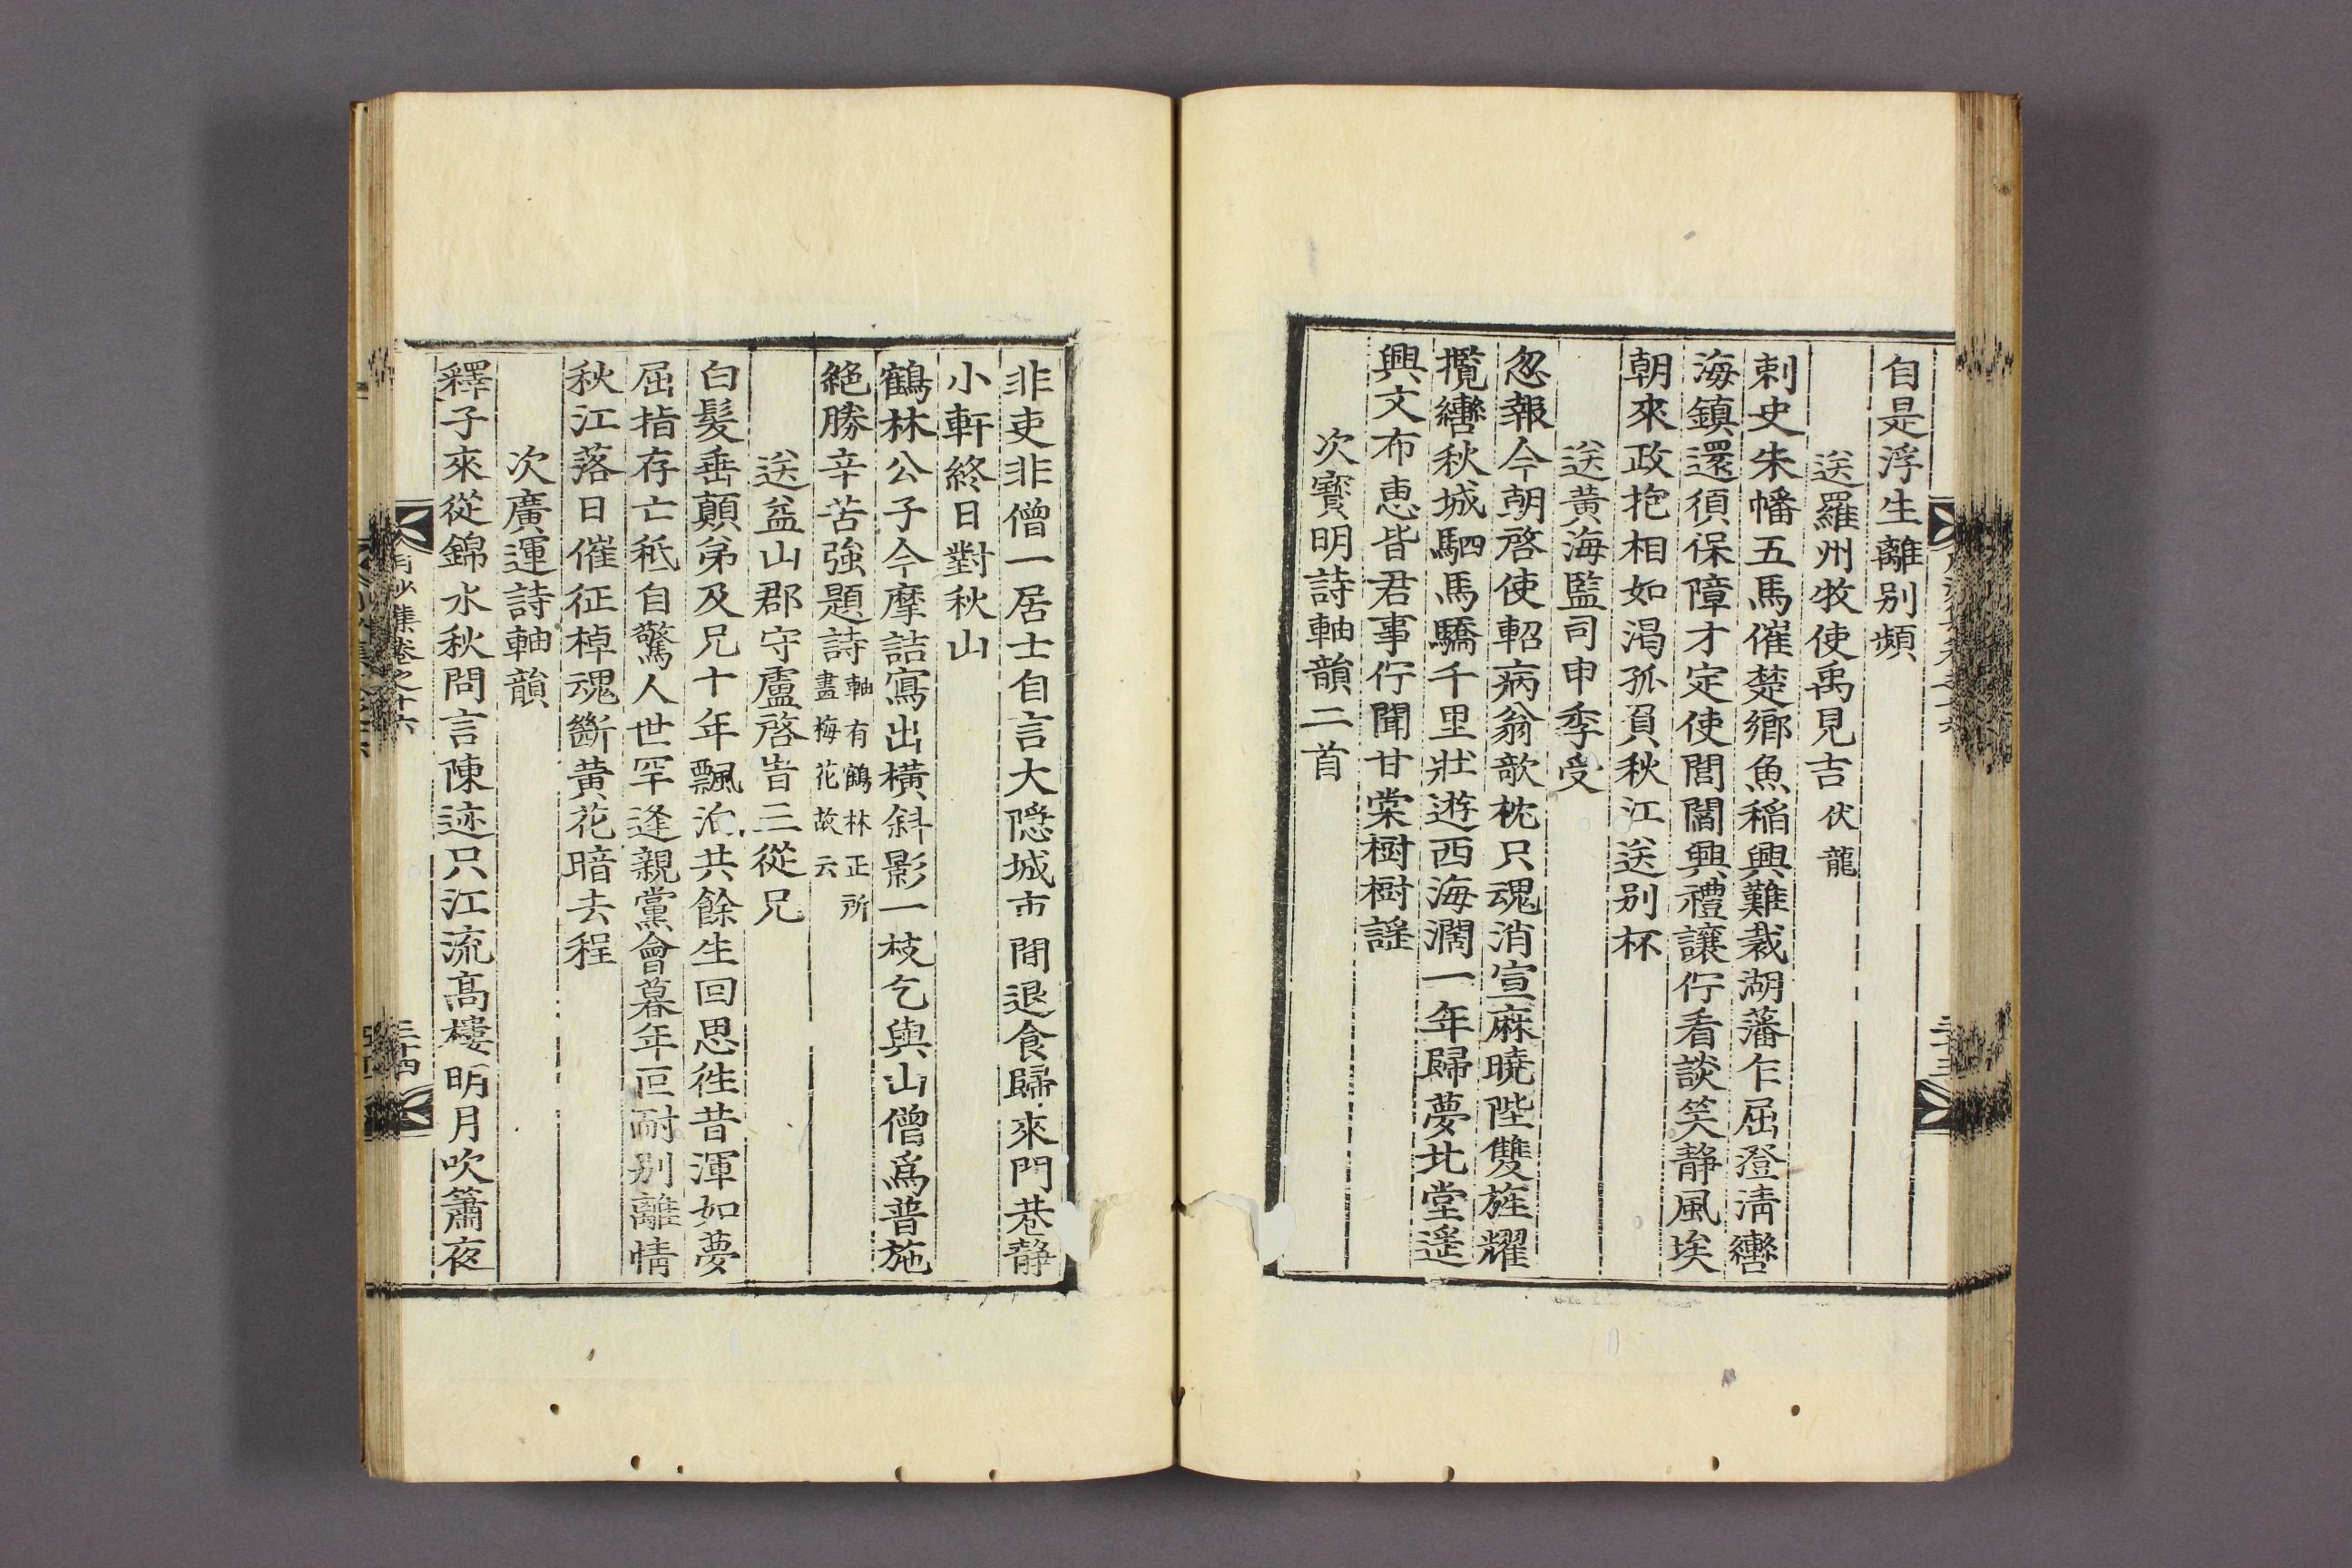 自是浮生離别頻
送羅州牧使禹見吉伏龍
刺史朱幡五馬催楚鄕魚稻興難裁湖藩乍屈澄淸轡
海鎮還須保障才定使閭閻興禮讓佇看談笑静風埃
朝來政抱相如渴孤負秋江送别杯
送黄海監司申季受
忽報今朝啓使軺病翁欹枕只魂消宣麻曉陛雙旌耀
攬轡秋城駟馬驕千里壯遊西海濶一年歸夢北堂遥
興文布恵皆君事佇聞甘棠樹樹謡
次寳明詩軸韻二首
非吏非僧一居士自言大隠城市間退食歸來門巷静
小軒終日對秋山
鶴林公子今摩詰寫出橫斜影一枝乞與山僧爲普施
絶勝辛苦強題詩軸有鶴林正所畫梅花故云
送益山郡守盧啓昔三從兄
白髮垂顛弟及兄十年飄泊共餘生回思徃昔渾如夢
屈指存亡秪自驚人世罕逢親黨會暮年叵耐别離情
秋江落日催征棹魂斷黄花暗去程
次廣運詩軸韻
釋子來從錦水秋問言陳迹只江流高樓明月吹簫夜
集卷之十六
三十四